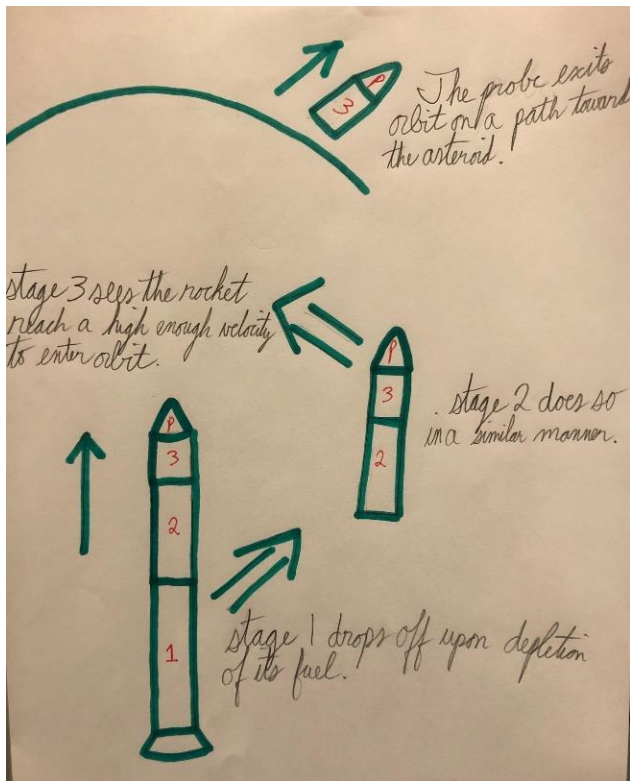 P
3
The probe exits
orbit on a path toward
the asteroid.
stage 3 sees the rocket
reach a high enough velocity
to enter orbit.
P
3
2
. stage 2 does so
in a similar manner.
P
3
2
1
stage 1 drops off upon depletion
of its fuel.